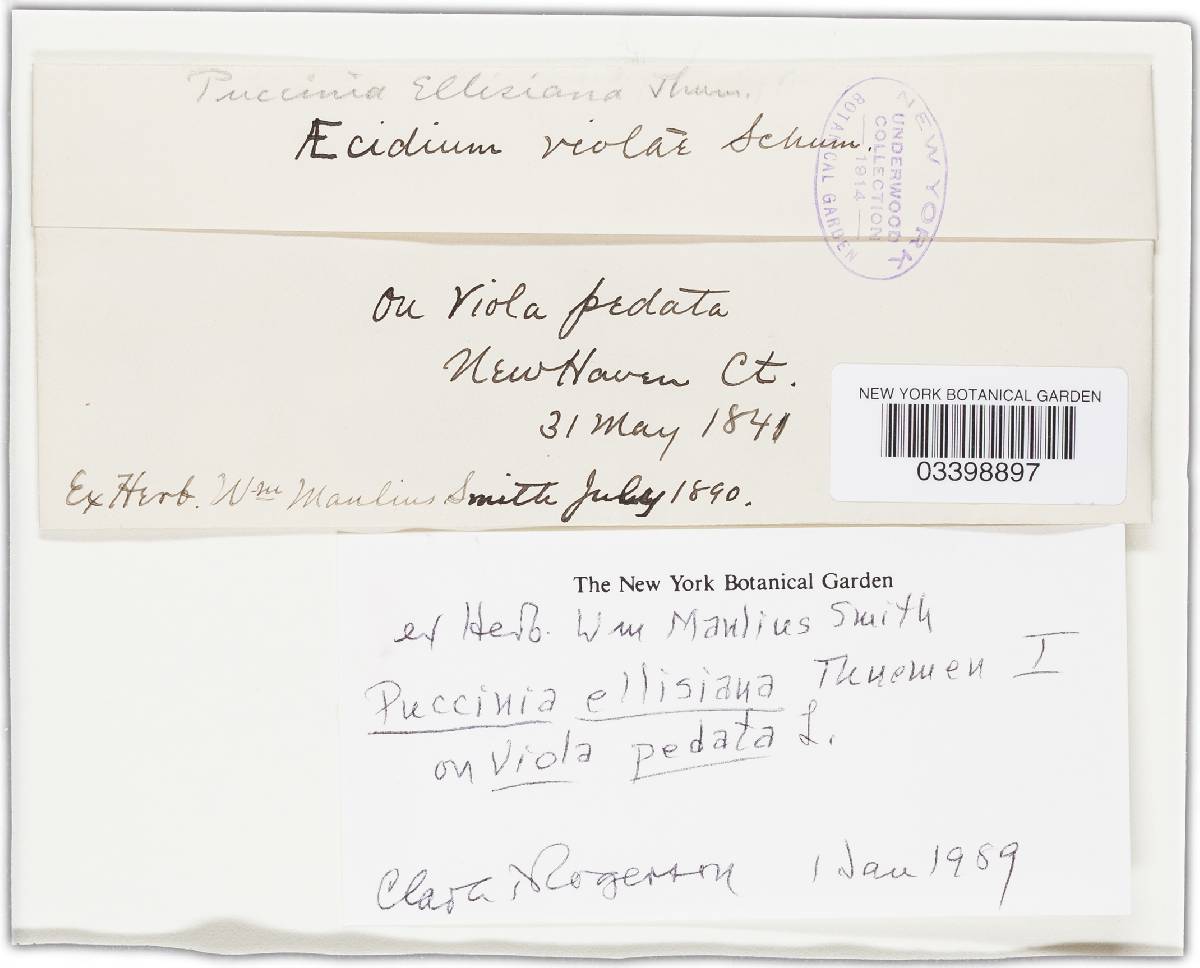 Puccinia Ellisiana Thum.
Æcidium violae Schum.
NEW YORK
BOTANICAL GARDEN
UNDERWOOD
COLLECTION
1914
on Viola pedata
New Haven Ct.
31 May 1841
NEW YORK BOTANICAL GARDEN
03398897
Ex Herb. Wm Manlius Smith July 1890.
The New York Botanical Garden
ex Herb. Wm Manlius Smith
Puccinia ellisiana Thuemen I
on Viola pedata L.
Clark Rogerson 1 Jan 1989